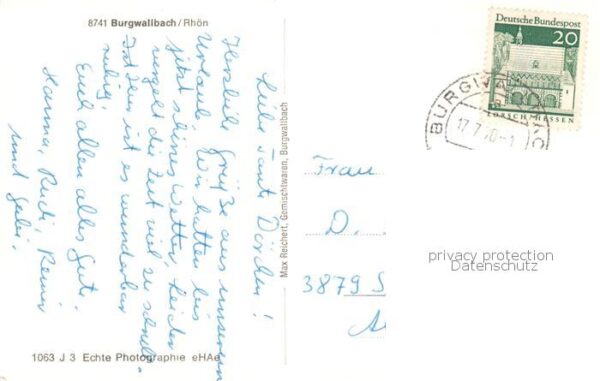 8741 Burgwallbach/Rhön
Liebe Tante Dörchen!
Herzliche Grüße aus unserem
Urlaub. Wir hatten bis
jetzt schönes Wetter, leider
vergeht die Zeit viel zu schnell.
ist es wunderbar
ruhig.
Euch allen alles Gute.
Hanna, Rudi, Reiner
und
1063 J 3 Echte Photographie eHAe
Max Reichert, Gemischtwaren, Burgwallbach
Deutsche Bundespost
20
LORSCH/HESSEN
BURGWALLBAC
17.7.70-1
Frau
D.
3879 S
privacy protection
Datenschutz